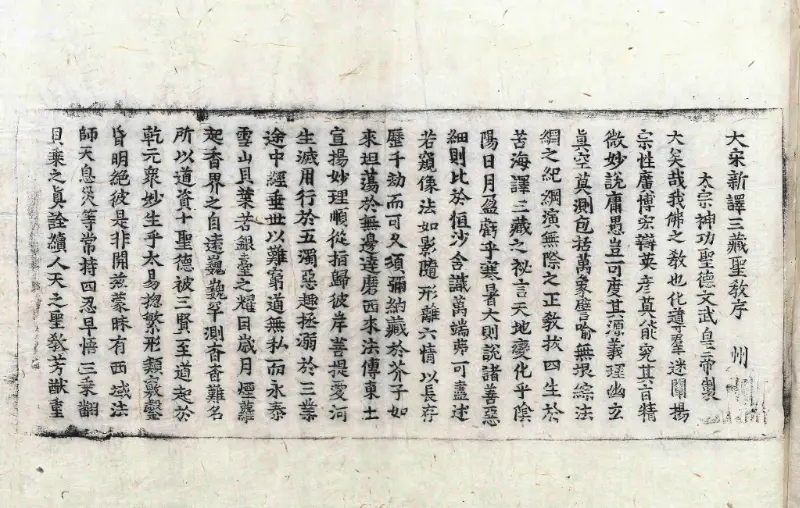 大宋新譯三藏聖敎序 州
太宗神功聖德文武皇帝製
大矣哉我佛之敎也化導羣迷闡揚
宗性廣博宏辯英彦莫能究其旨精
微妙說庸愚豈可度其源義理幽玄
眞空莫測包括萬象譬喩無垠綜法
網之紀綱演無際之正敎拔四生於
苦海譯三藏之祕言天地變化乎陰
陽日月盈虧乎寒暑大則說諸善惡
細則比於恒沙含識萬端弗可盡述
若窺像法如影隨形離六情以長存
歷千劫而可久須彌納藏於芥子如
來坦蕩於無邊達磨西來法傳東土
宣揚妙理順從指歸彼岸菩提愛河
生滅用行於五濁惡趣拯溺於三業
途中經垂世以難窮道無私而永泰
雪山貝葉若銀臺之耀目歲月煙蘿
起香界之自遠巍巍罕測杳杳難名
所以道資十聖德被三賢至道起於
乾元衆妙生乎太易揔繁形類竅鑿
昏明絕彼是非開茲蒙昧有西域法
師天息災等常持四忍早悟三乘翻
貝葉之眞詮續人天之聖敎芳猷重